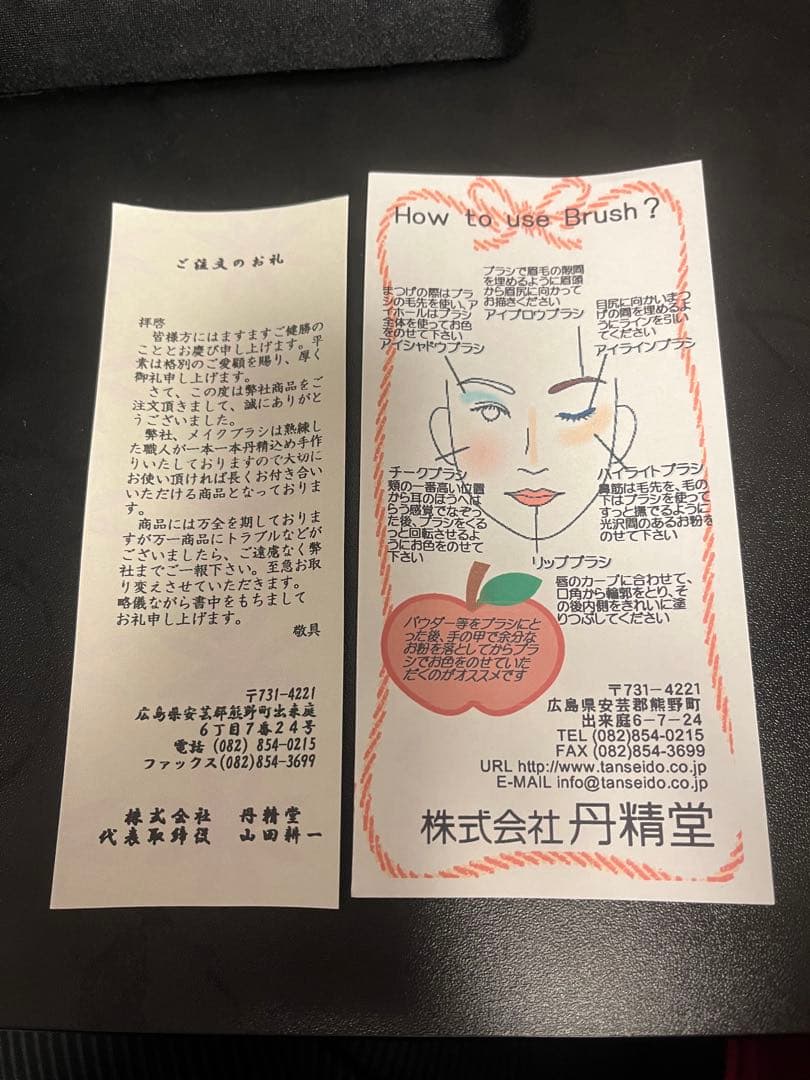 ご注文のお礼
拝啓
皆様方にはますますご健勝の
こととお慶び申し上げます。平
素は格別のご愛顧を賜り、厚く
御礼申し上げます。
さて、この度は弊社商品をご
注文頂きまして、誠にありがと
うございました。
弊社、メイクブラシは熟練し
た職人が一本一本丹精込め手作
りいたしておりますので大切に
お使い頂ければ長くお付き合い
いただける商品となっておりま
す。
商品には万全を期しておりま
すが万一商品にトラブルなどが
ございましたら、ご遠慮なく弊
社までご一報下さい。至急お取
り変えさせていただきます。
略儀ながら書中をもちまして
お礼申し上げます。
敬具
〒731-4221
広島県安芸郡熊野町出来庭
6丁目7番24号
電話 (082) 854-0215
ファックス(082)854-3699
株式会社 丹精堂
代表取締役 山田耕一
How to use Brush?
まつげの際はブラ
シの毛先を使い、ア
イホールはブラシ
全体を使ってお色
をのせて下さい
アイシャドウブラシ
ブラシで眉毛の隙間
を埋めるように眉頭
から眉尻に向かって
お描きください
アイブロウブラシ
目尻に向かいまつ
げの間を埋めるよ
うにラインを引い
てください
アイラインブラシ
チークブラシ
頬の一番高い位置
から耳のほうへは
らう感覚でなぞっ
た後、ブラシをくる
っと回転させるよ
うにお色をのせて
下さい
ハイライトブラシ
鼻筋は毛先を、毛の
下はブラシを使って
すっと撫でるように
光沢間のあるお粉を
のせて下さい
リップブラシ
唇のカーブに合わせて、
口角から輪郭をとり、そ
の後内側をきれいに塗
りつぶしてください
パウダー等をブラシにと
った後、手の甲で余分な
お粉を落としてからブラ
シでお色をのせていた
だくのがオススメです
〒731-4221
広島県安芸郡熊野町
出来庭6-7-24
TEL (082)854-0215
FAX (082)854-3699
URL http://www.tanseido.co.jp
E-MAIL info@tanseido.co.jp
株式会社 丹精堂